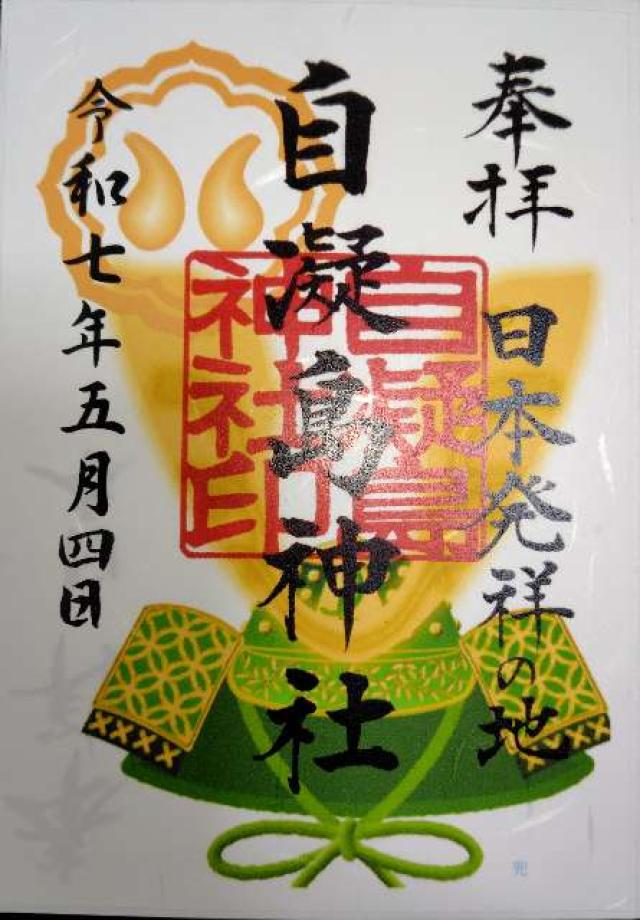 奉拝
日本発祥の地
自凝島神社
自凝島
神社印
令和七年五月四日
兜